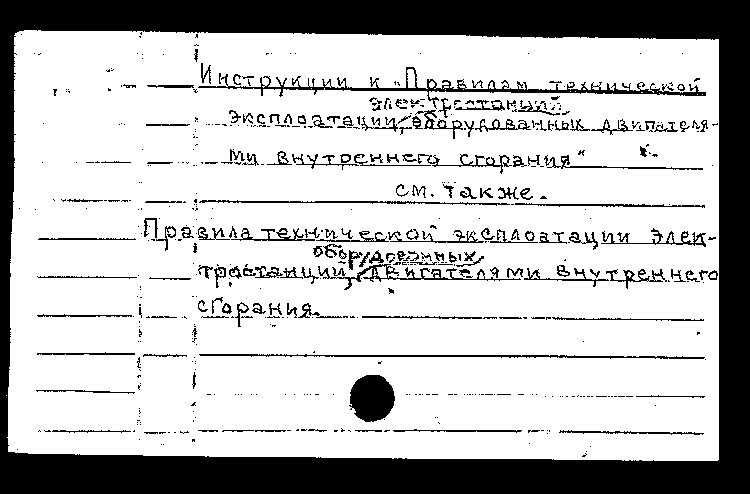 Инструкции к „Правилам технической
электростанций,
эксплоатации, оборудованных двигателя-
ми внутреннего сгорания"
см. также.
Правила технической эксплоатации элек-
оборудованных
тростанции, двигателями внутреннего
сгорания.